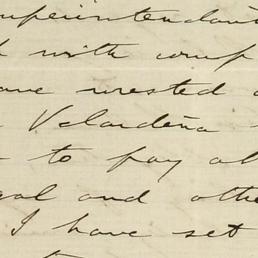 uperintendan
with comp
ave wrested
Velardeña
to pay al
gal and othe
I have set